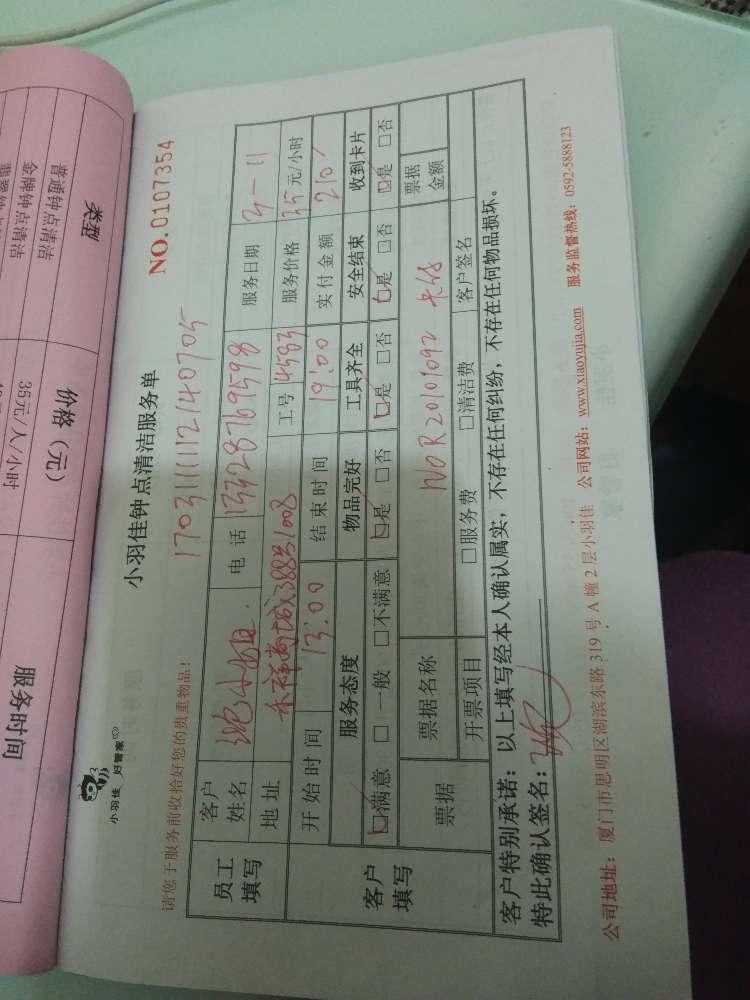 小羽佳 好管家
小羽佳钟点清洁服务单
NO.0107354
请您于服务前收拾好您的贵重物品!
1703111112140705
员工填写 客户姓名 小姐 电话 13328769598 服务日期 3-11
地址 禾祥商城 1008 工号 4583 服务价格 35元/小时
客户填写 开始时间 13:00 结束时间 19:00 实付金额 210
服务态度 物品完好 工具齐全 安全结束 收到卡片
☑满意 □一般 □不满意 ☑是 □否 ☑是 □否 ☑是 □否 ☑是 □否
票据 票据名称 NOR20101092 票据金额
开票项目 □服务费 □清洁费 客户签名
客户特别承诺:以上填写经本人确认属实,不存在任何纠纷,不存在任何物品损坏。
特此确认签名:
公司地址:厦门市思明区湖滨东路319号A幢2层小羽佳 公司网站:www.xiaoyujia.com 服务监督热线:0592-5888123
类型 价格(元) 服务时间
普通钟点清洁 35元/人/小时
金牌钟点清洁